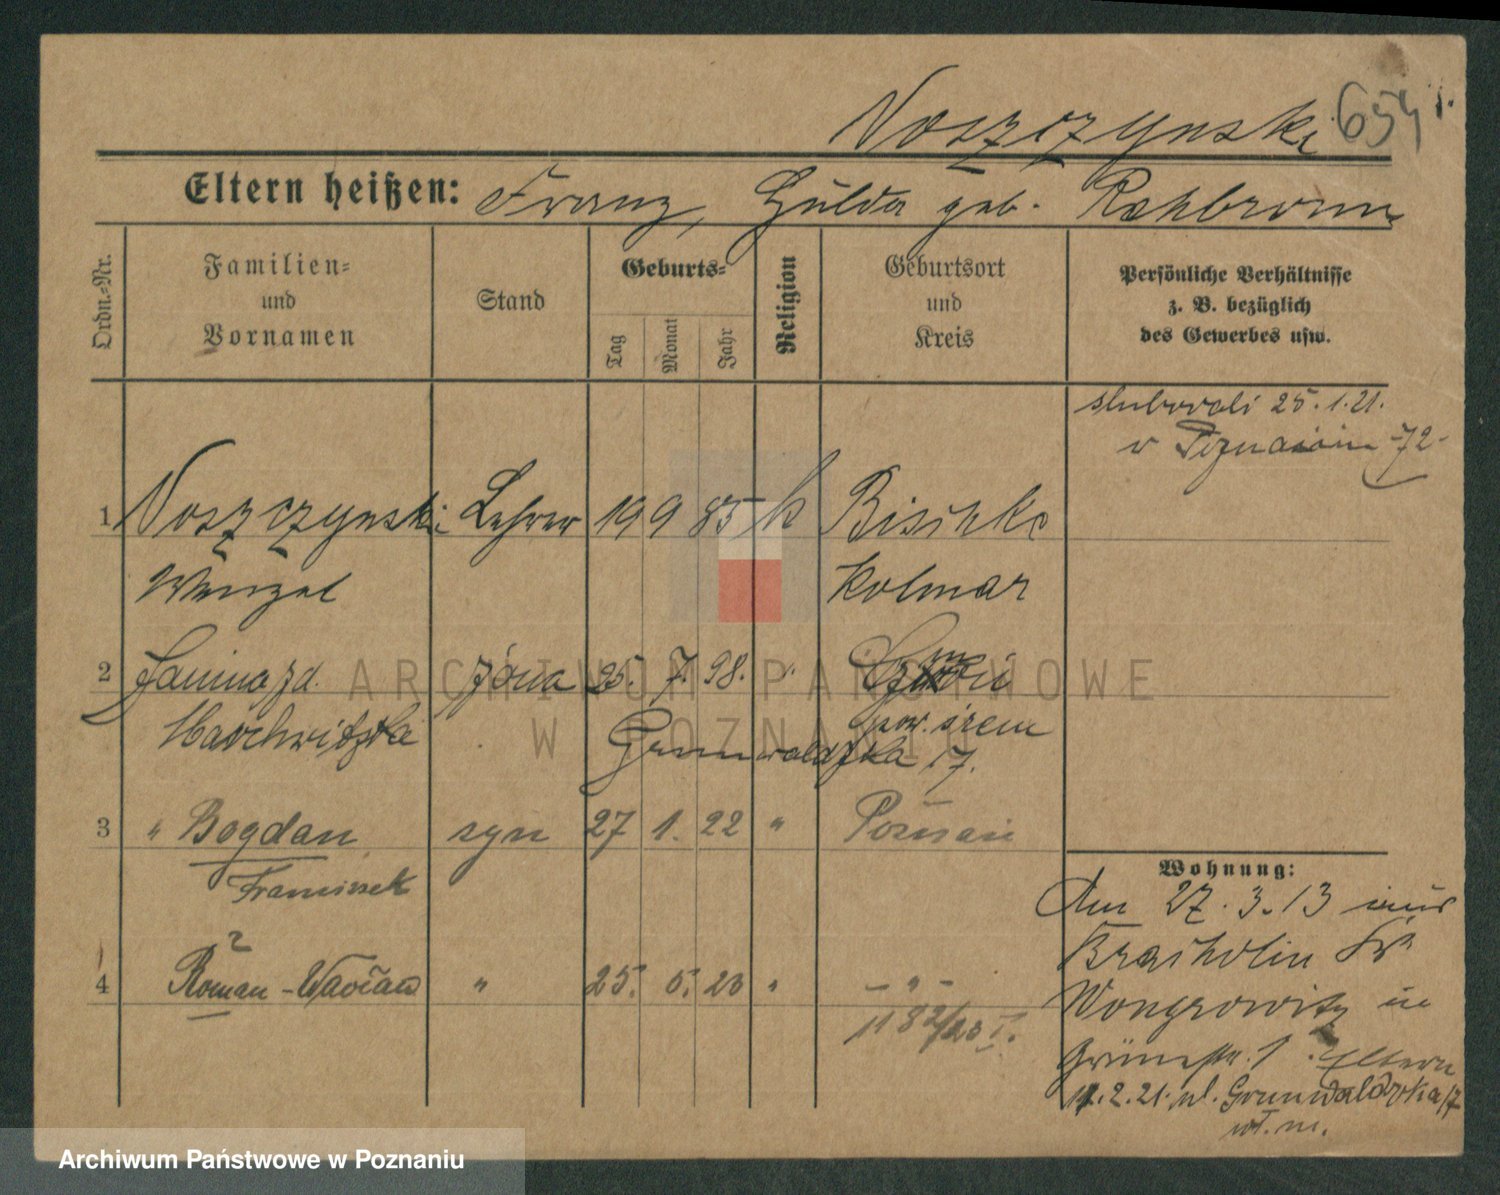 Noszczynski 654
Eltern heißen: Franz, Hulda geb. Rehbronn
Ordn.=Nr.
Familien= und Vornamen
Stand
Geburts=
Tag Monat Jahr
Religion
Geburtsort und Kreis
Persönliche Verhältnisse z. B. bezüglich des Gewerbes usw.
ślubowali 25.1.21.
w Poznaniu -72-
1 Noszczynski Lehrer 19 9 85 k
Wenzel Kolmar
2 Janina zd. żona 25. 7. 98. "
pow. śrem
Grunwaldzka 17.
3 " Bogdan syn 27 1. 22 " Poznań
Franciszek
4 Roman - Wacław " 25. 5. 23 " - " -
1182/23 I.
Wohnung:
Am 27.3.13 aus
Kr.
Wongrowitz in
1. Eltern
11.2.21. ul. Grunwaldzka 17
wł. m.
ARCHIWUM PAŃSTWOWE
W POZNANIU
Archiwum Państwowe w Poznaniu